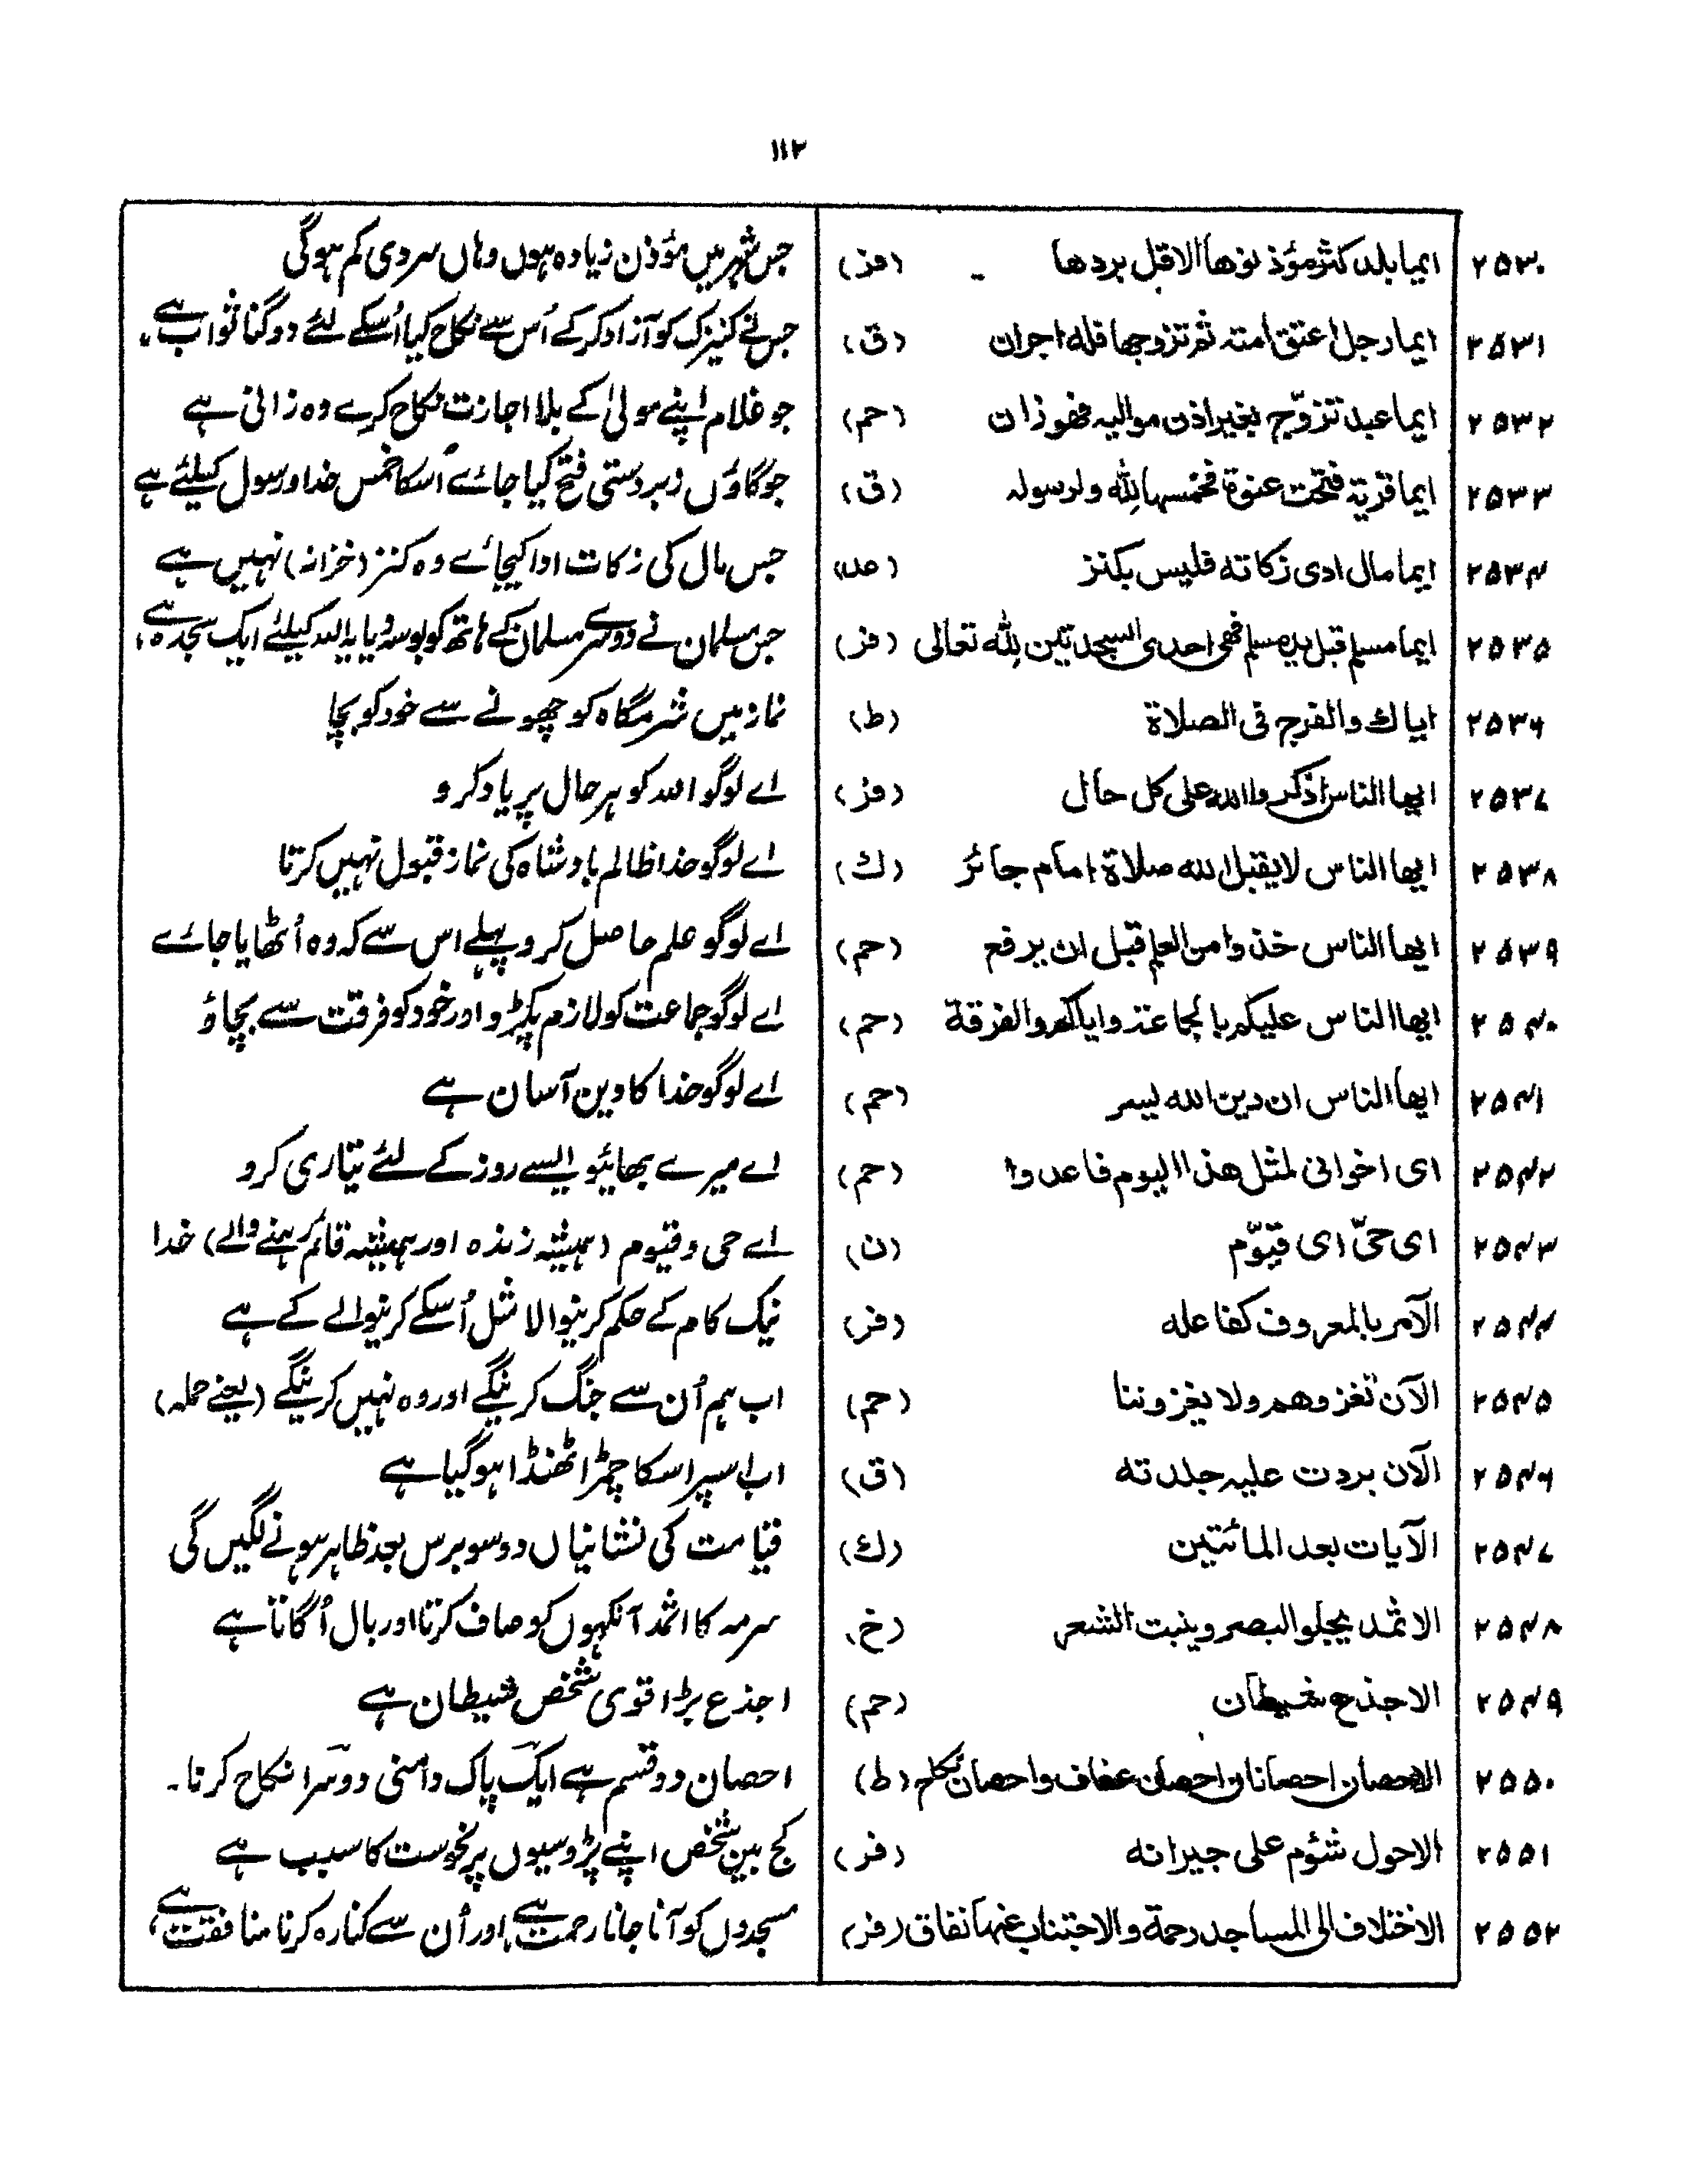 ۱۱۲
۲۵۳۰ ایما بلد کثر مؤذنوها الا قل بردها (فز) جس شہر میں مؤذن زیادہ ہوں وہاں سردی کم ہوگی
۲۵۳۱ ایما رجل اعتق امته ثم تزوجها فله اجران (ق) جس نے کنیزک کو آزاد کرکے اُس سے نکاح کیا اُسکے لئے دوگنا ثواب ہے۔
۲۵۳۲ ایما عبد تزوّج بغیر اذن موالیه فهو زان (حم) جو غلام اپنے مولیٰ کے بلا اجازت نکاح کرے وہ زانی ہے
۲۵۳۳ ایما قریة فتحت عنوة فخمسها لله ولرسوله (ق) جو گاؤں زبردستی فتح کیا جائے اُسکا خمس خدا و رسول کیلئے ہے
۲۵۳۴ ایما مال ادی زکاته فلیس بکنز (عد) جس مال کی زکات ادا کیجائے وہ کنز (خزانہ) نہیں ہے
۲۵۳۵ ایما مسلم قبل ید مسلم فهی احدی السجدتین لله تعالی (فز) جس مسلمان نے دوسرے مسلمان کے ہاتھ کو بوسہ دیا یہ اللہ کیلئے ایک سجدہ ہے،
۲۵۳۶ ایاك والفرج فی الصلاة (ط) نماز میں شرمگاہ کو چھونے سے خود کو بچا
۲۵۳۷ ایها الناس اذکروا الله علی کل حال (فز) اے لوگو اللہ کو ہر حال پر یاد کرو
۲۵۳۸ ایها الناس لا یقبل الله صلاة امام جائر (ك) اے لوگو خدا ظالم بادشاہ کی نماز قبول نہیں کرتا
۲۵۳۹ ایها الناس خذوا من العلم قبل ان یرفع (حم) اے لوگو علم حاصل کرو پہلے اس سے کہ وہ اُٹھایا جائے
۲۵۴۰ ایها الناس علیکم بالجماعة وایاکم والفرقة (حم) اے لوگو جماعت کو لازم پکڑو اور خود کو فرقت سے بچاؤ
۲۵۴۱ ایها الناس ان دین الله لیسر (حم) اے لوگو خدا کا دین آسان ہے
۲۵۴۲ ای اخوانی لمثل هذا الیوم فاعدوا (حم) اے میرے بھائیو ایسے روز کے لئے تیاری کرو
۲۵۴۳ ای حیّ ای قیّوم (ن) اے حی و قیوم (ہمیشہ زندہ اور ہمیشہ قائم رہنے والے) خدا
۲۵۴۴ الآمر بالمعروف کفاعله (فز) نیک کام کے حکم کرنیوالا مثل اُسکے کرنیوالے کے ہے
۲۵۴۵ الآن نغزوهم ولا یغزوننا (حم) اب ہم اُن سے جنگ کرینگے اور وہ نہیں کرینگے (یعنے حملہ)
۲۵۴۶ الآن بردت علیه جلدته (ق) اب اسپر اسکا چمڑا ٹھنڈا ہوگیا ہے
۲۵۴۷ الآیات بعد المائتین (ك) قیامت کی نشانیاں دو سو برس بعد ظاہر ہونے لگیں گی
۲۵۴۸ الاثمد یجلو البصر وینبت الشعر (خ) سرمہ کا اثمد آنکھوں کو صاف کرتا اور بال اُگاتا ہے
۲۵۴۹ الاجذع شیطان (حم) اجذع بڑا قوی شخص شیطان ہے
۲۵۵۰ الاحصان احصانان احصان عفاف واحصان نکاح (ط) احصان دو قسم ہے ایک پاک دامنی دوسرا نکاح کرنا۔
۲۵۵۱ الاحول شؤم علی جیرانه (فز) کج بین شخص اپنے پڑوسیوں پر نحوست کا سبب ہے
۲۵۵۲ الاختلاف الی المساجد رحمة والاجتناب عنها نفاق (فز) مسجدوں کو آنا جانا رحمت ہے اور اُن سے کنارہ کرنا منافقت ہے،